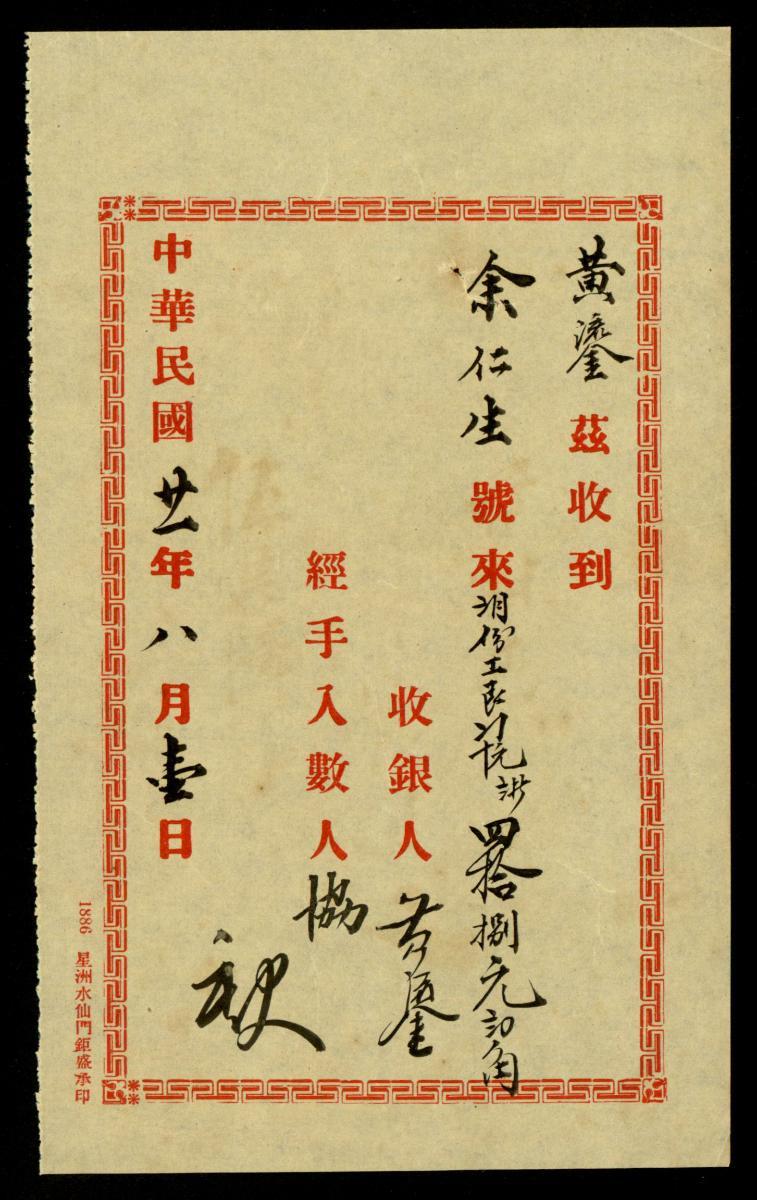 黃鎏 茲收到
余仁生 號來 份工艮 四拾捌元 角
收銀人 黃鎏
經手入數人 協
中華民國廿一年八月壹日
1886 星洲水仙門鉅盛承印